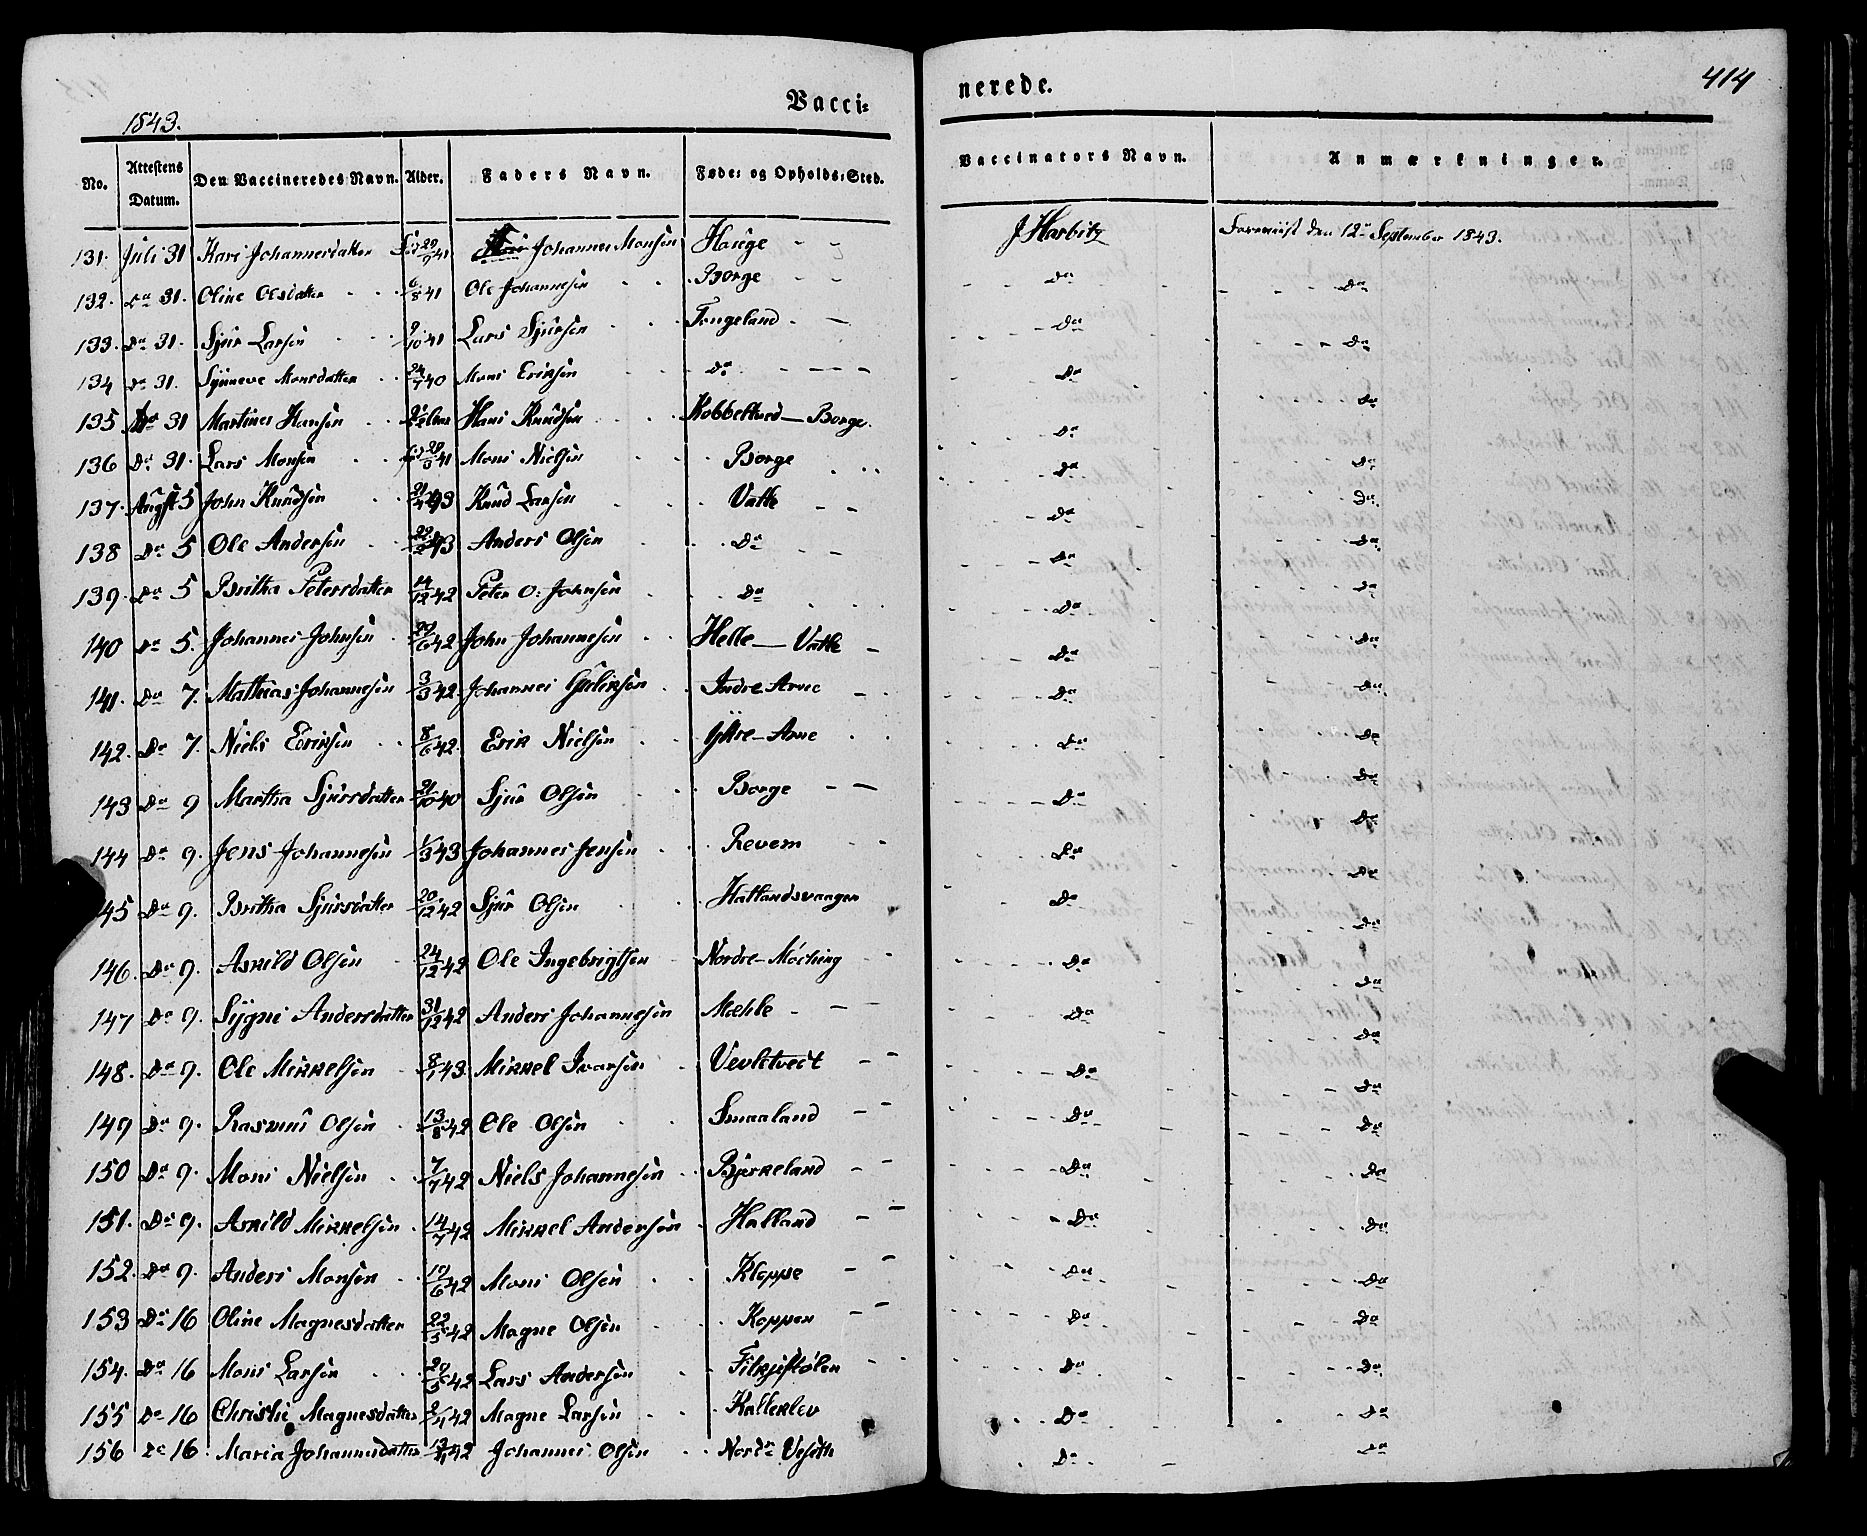 Vacci= nerede.
414
1843.
No. Attestens Datum. Den Vaccineredes Navn. Alder. Faders Navn. Føde= og Opholds=Sted. Vaccinators Navn. Anmærkninger.
131. Juli 31 Kari Johannesdatter 29/9 41 Johannes Monsen Hauge J Harbitz Foreviist den 12te September 1843.
132. Do 31. Oline Olsdatter 6/8 41 Ole Johannesen Borge Do Do
133. Do 31. Sjur Larsen 9/10 41 Lars Sjursen Tongeland Do Do
134 Do 31. Synneve Monsdatter 24/7 40 Mons Eriksen Do Do Do
135 Do 31 Martines Hansen Hans Knudsen Kobbeltved — Borge. Do Do
136 Do 31. Lars Monsen 41 Mons Nielsen Borge Do Do
137. Augst 5 John Knudsen 43 Knud Larsen Vatle Do Do
138 Do 5 Ole Andersen 43 Anders Olsen Do Do Do
139. Do 5 Britha Petersdatter 14/12 42 Peter O. Johnsen Do Do Do
140 Do 5. Johannes Johnsen 29/6 42 John Johannesen Helle — Vatle Do Do
141. Do 7. Mathias Johannesen 3/3 42 Johannes Indre Arne Do Do
142. Do 7. Niels Eriksen 8/6 42. Erik Nielsen Ytre - Arne Do Do
143 Do 9 Martha Sjursdatter 21/10 40 Sjur Olsen Borge Do Do
144 Do 9. Jens Johannesen 1/3 43 Johannes Jensen Revem Do Do
145 Do 9. Britha Sjursdatter 20/12 42 Sjur Olsen Hatlandsvaagen Do Do
146. Do 9. Askild Olsen 24/12 42 Ole Ingebrigtsen Nordre - Do Do
147 Do 9. Sygni Andersdatter 31/12 42 Anders Johannesen Mæhle Do Do
148. Do 9. Ole Mikkelsen 8/1 43. Mikkel Ivarsen Vevletveit Do Do
149 Do 9. Rasmus Olsen 13/8 42 Ole Olsen Smaaland Do Do
150 Do 9. Mons Nielsen 7/7 42 Niels Johannesen Bjørkeland Do Do
151. Do 9. Askild Mikkelsen 14/7 42 Mikkel Andersen Halland Do Do
152. Do 9. Anders Monsen 10/6 42 Mons Olsen Kleppe Do Do
153 Do 16 Oline Magnesdatter 22/5 42 Magne Olsen Koppen Do Do
154. Do 16 Mons Larsen 29/5 42 Lars Andersen Do Do
155 Do 16 Christie Magnesdatter 2/4 42 Magne Larsen Kalleklev Do Do
156 Do 16. Maria Johannesdatter 42 Johannes Olsen Nordr Veseth Do Do